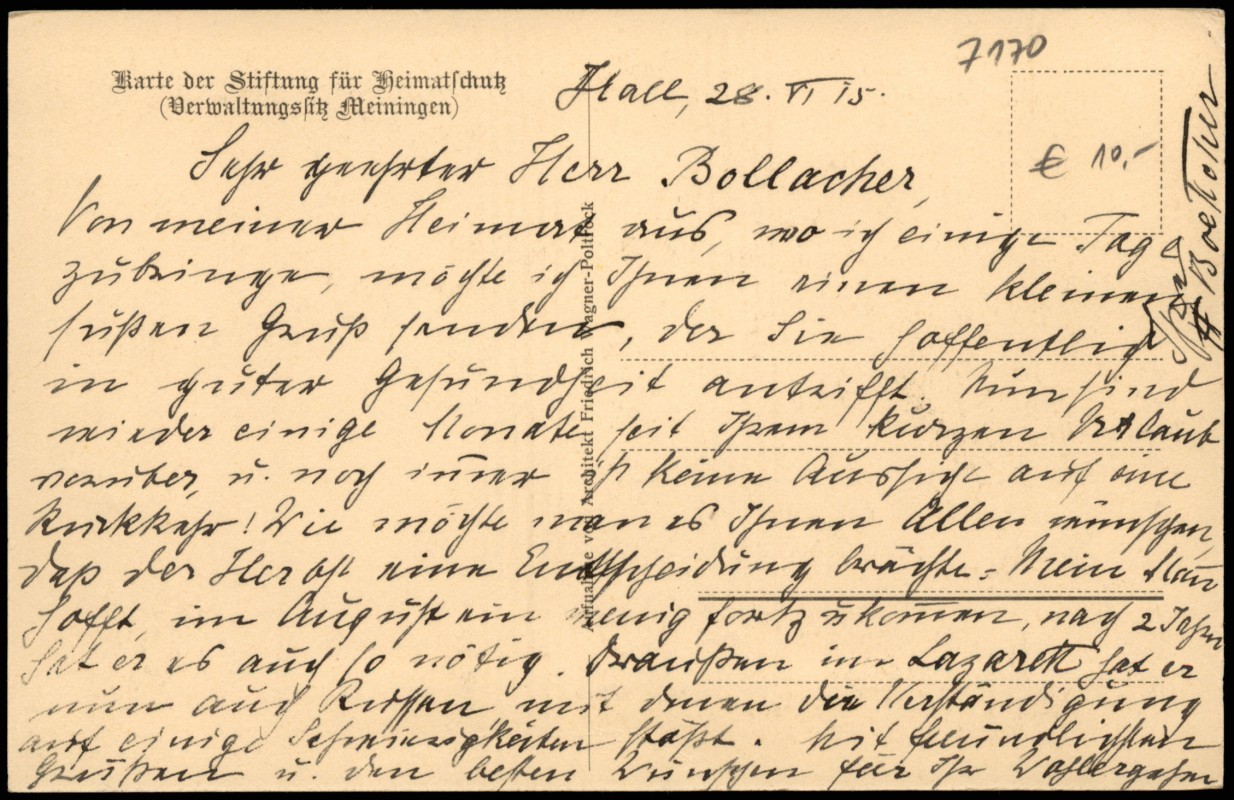 7170
Karte der Stiftung für Heimatschutz
(Verwaltungssitz Meiningen)
Hall, 28. VI 15.
€ 10,-
Sehr geehrter Herr Bollacher,
Von meiner Heimat aus, wo ich einige Tage
zubringe, möchte ich Ihnen einen kleinen
süßen Gruß senden, der Sie hoffentlich
in guter Gesundheit antrifft. Nun sind
wieder einige Monate seit Ihrem kurzen Urlaub
vorüber, u. noch im̄er keine Aussicht auf eine
Rückkehr! Wie möchte man es Ihnen Allen wünschen,
daß der Herbst eine Entscheidung brächte. Mein Man̄
hofft, im August ein wenig fortzukom̄en, nach 2 Jahren
hat er es auch so nötig. Draußen im Lazarett hat er
nun auch Russen mit denen die Verständigung
auf einige Schwierigkeiten stößt. Mit freundlichsten
Grüßen u. den besten Wünschen für Ihr Wohlergehen
Ihre
Boettcher
Aufnahme von Architekt Friedrich Wagner-Poltrock